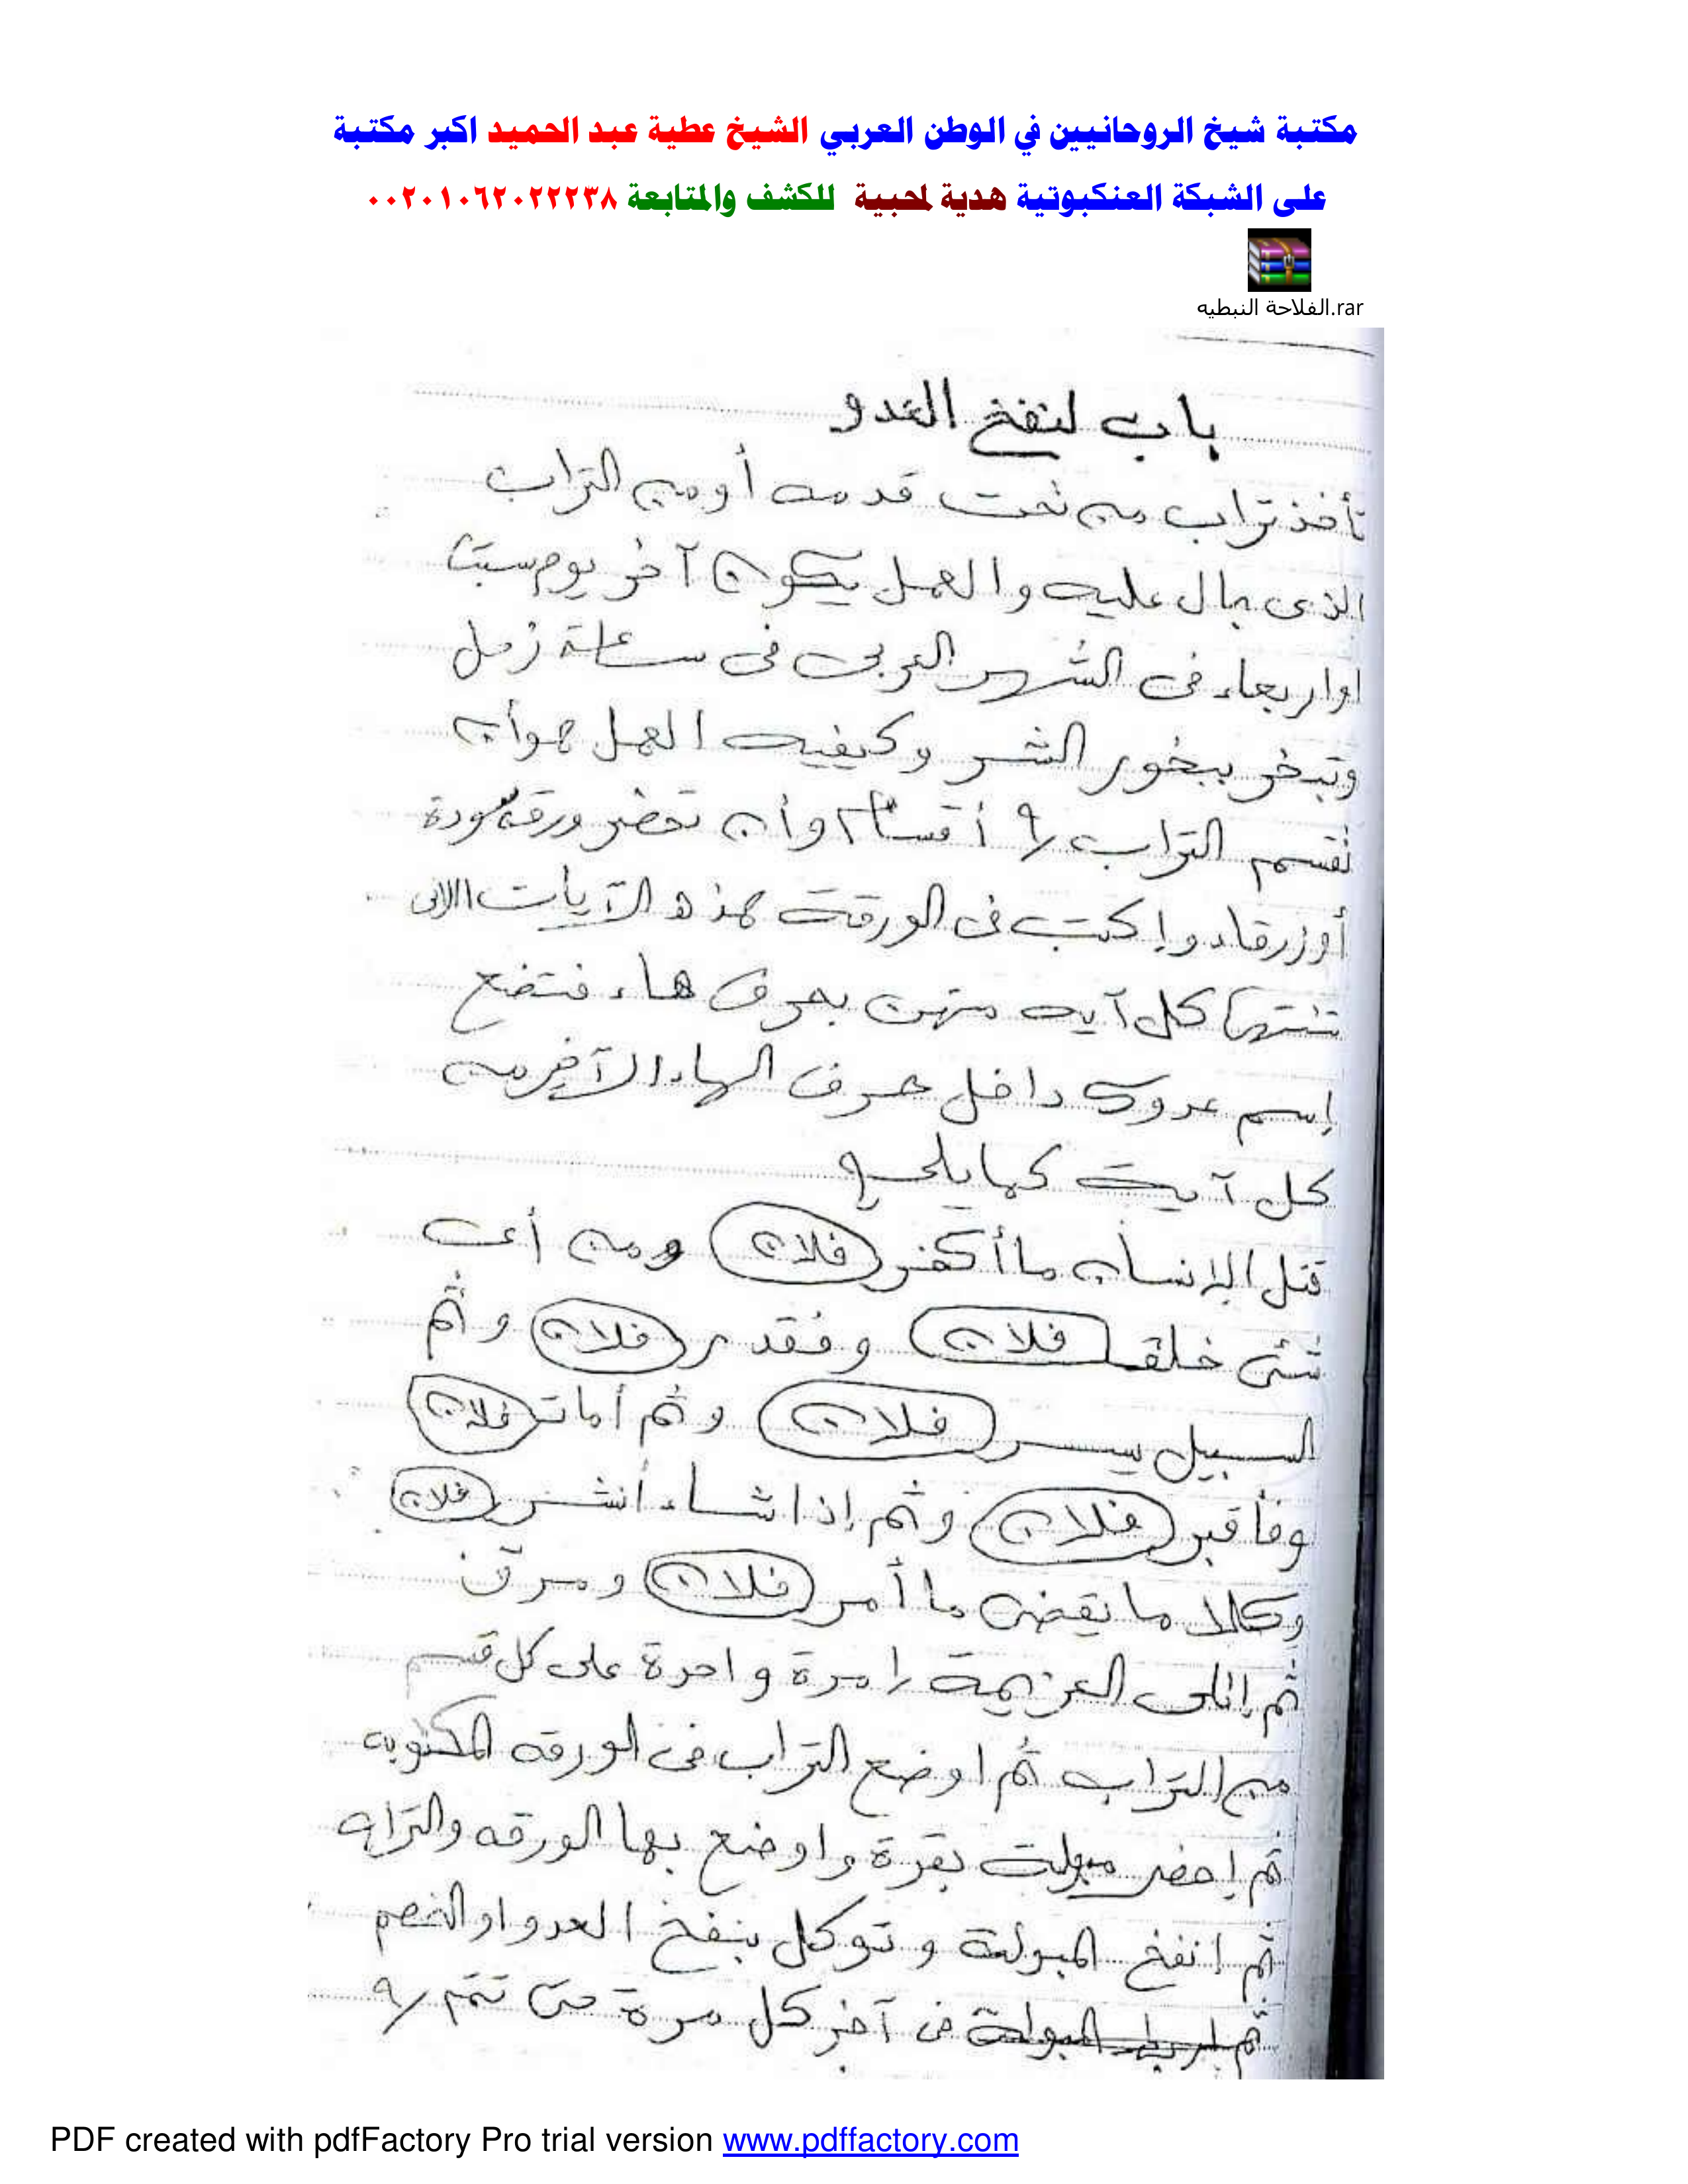 مكتبة شيخ الروحانيين في الوطن العربي الشيخ عطية عبد الحميد اكبر مكتبة
على الشبكة العنكبوتية هدية لمحبية للكشف والمتابعة ٠٠٢٠١٠٦٢٠٢٢٢٣٨
الفلاحة النبطيه.rar
باب لنفخ العدو
تأخذ تراب من تحت قدمه أو من التراب
الذى بال عليه والعمل يكون آخر يوم سبت
او اربعاء فى الشهر العربى فى ساعة زحل
وتبخر ببخور الشر وكيفيه العمل هو أن
تقسم التراب ٩ أقسام وأن تحضر ورقه سودة
أو زرقاء وإكتب فى الورقة هذه الآيات اللاتى
تنتهى كل آيه منهن بحرف هاء فتضع
إسم عدوك داخل حرف الهاء الآخير من
كل آية كما يلى
قتل الإنسان ما أكفر فلان ومن أى
شئ خلق فلان وفقدر فلان وثم
السبيل يسر فلان وثم أمات فلان
وفأقبر فلان وثم إذا شاء أنشر فلان
وكلا ما يقضى ما أمر فلان
ثم إتلى العزيمة ١ مرة واحدة على كل قسم
من التراب ثم اوضع التراب فى الورقه المكتوبه
ثم إحضر مبولة بقرة واوضع بها الورقه والتراب
ثم إنفخ المبولة وتوكل بنفخ العدو او الخصم
ثم إربط المبولة فى آخر كل مرة حتى تتم ٩
PDF created with pdfFactory Pro trial version www.pdffactory.com